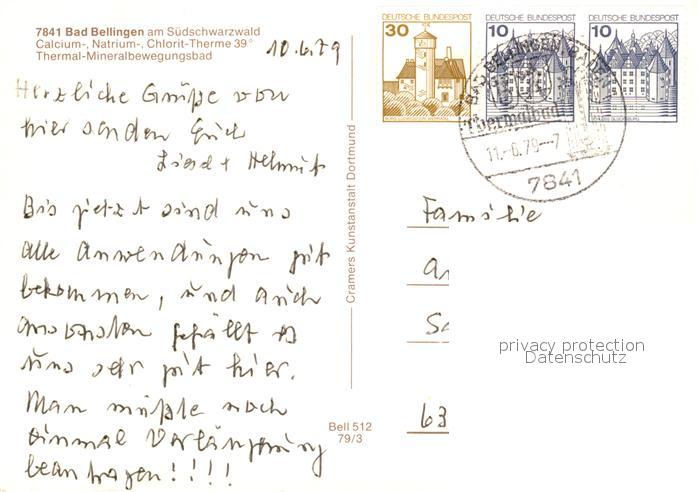 7841 Bad Bellingen am Südschwarzwald
Calcium-, Natrium-, Chlorit-Therme 39°
Thermal-Mineralbewegungsbad
10.6.79
Herzliche Grüße von
hier senden Euch
Liesel + Helmut
Bis jetzt sind uns
alle Anwendungen gut
bekommen, und auch
ansonsten gefällt es
uns sehr gut hier.
Man müßte noch
einmal Verlängerung
beantragen!!!!
Cramers Kunstanstalt Dortmund
Bell 512
79/3
DEUTSCHE BUNDESPOST
30
DEUTSCHE BUNDESPOST
10
DEUTSCHE BUNDESPOST
10
BAD BELLINGEN
Thermalbad
11.-6.79--7
7841
Familie
63
privacy protection
Datenschutz